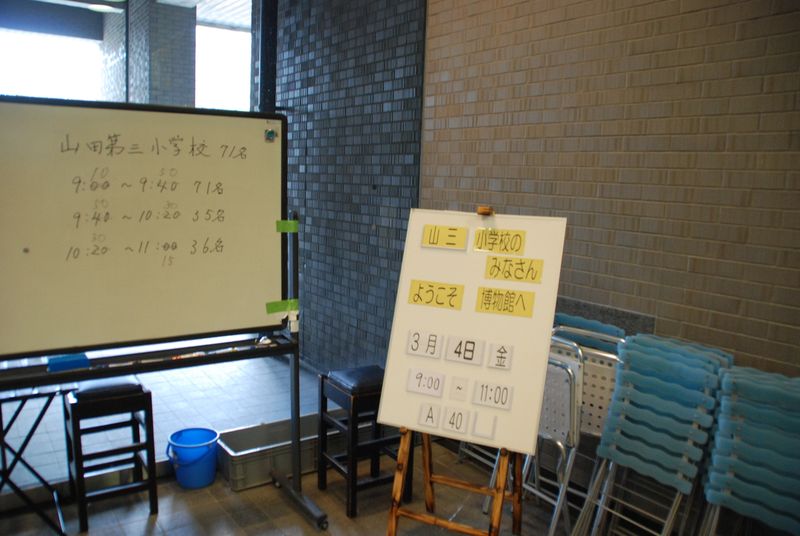 山田第三小学校 71名
10 50
9:00 ~ 9:40 71名
50 30
9:40 ~ 10:20 35名
30
10:20 ~ 11:00 36名
15
山三 小学校の
みなさん
ようこそ 博物館へ
3月 4日 金
9:00 ~ 11:00
A 40